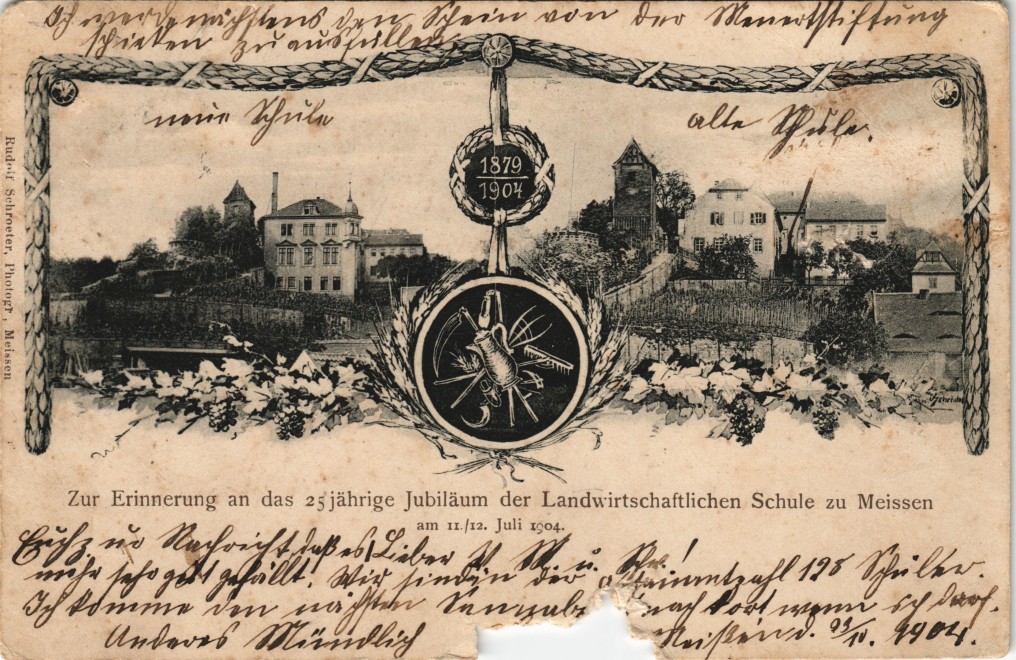 Ich werde nächstens den Schein von der Menertstiftung
schicken zu ausfüllen
neue Schule
alte Schule.
1879
1904
Rudolf Schroeter, Photogr., Meissen
Zur Erinnerung an das 25jährige Jubiläum der Landwirtschaftlichen Schule zu Meissen
am 11./12. Juli 1904.
Nachricht, daß es Lieber V. M. u. !
mir sehr gut gefällt. Wir sind in der zahl 128 Schüler.
Ich komme den nächsten nach dort wenn ich darf.
Anderes Mündlich
Meißen d. 1904.